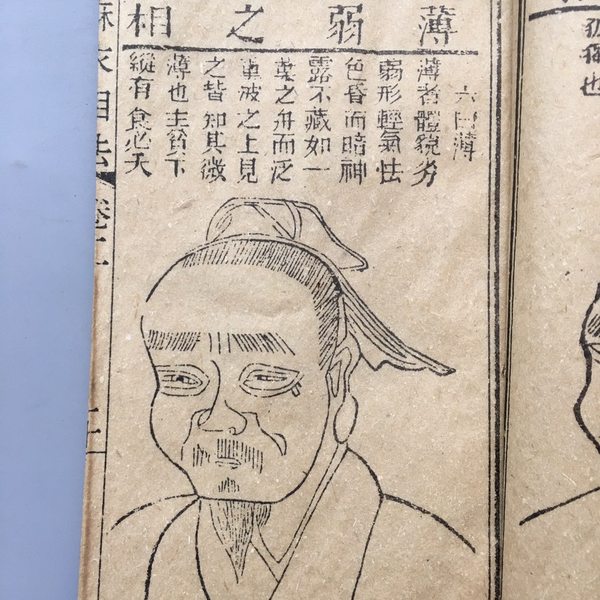 薄弱之相
六曰薄
薄者體貌劣
弱形輕氣怯
色昏而暗神
露不藏如一
葉之舟而泛
重波之上見
之皆知其微
薄也主貧下
縱有食必夭
麻衣相法
卷二
也